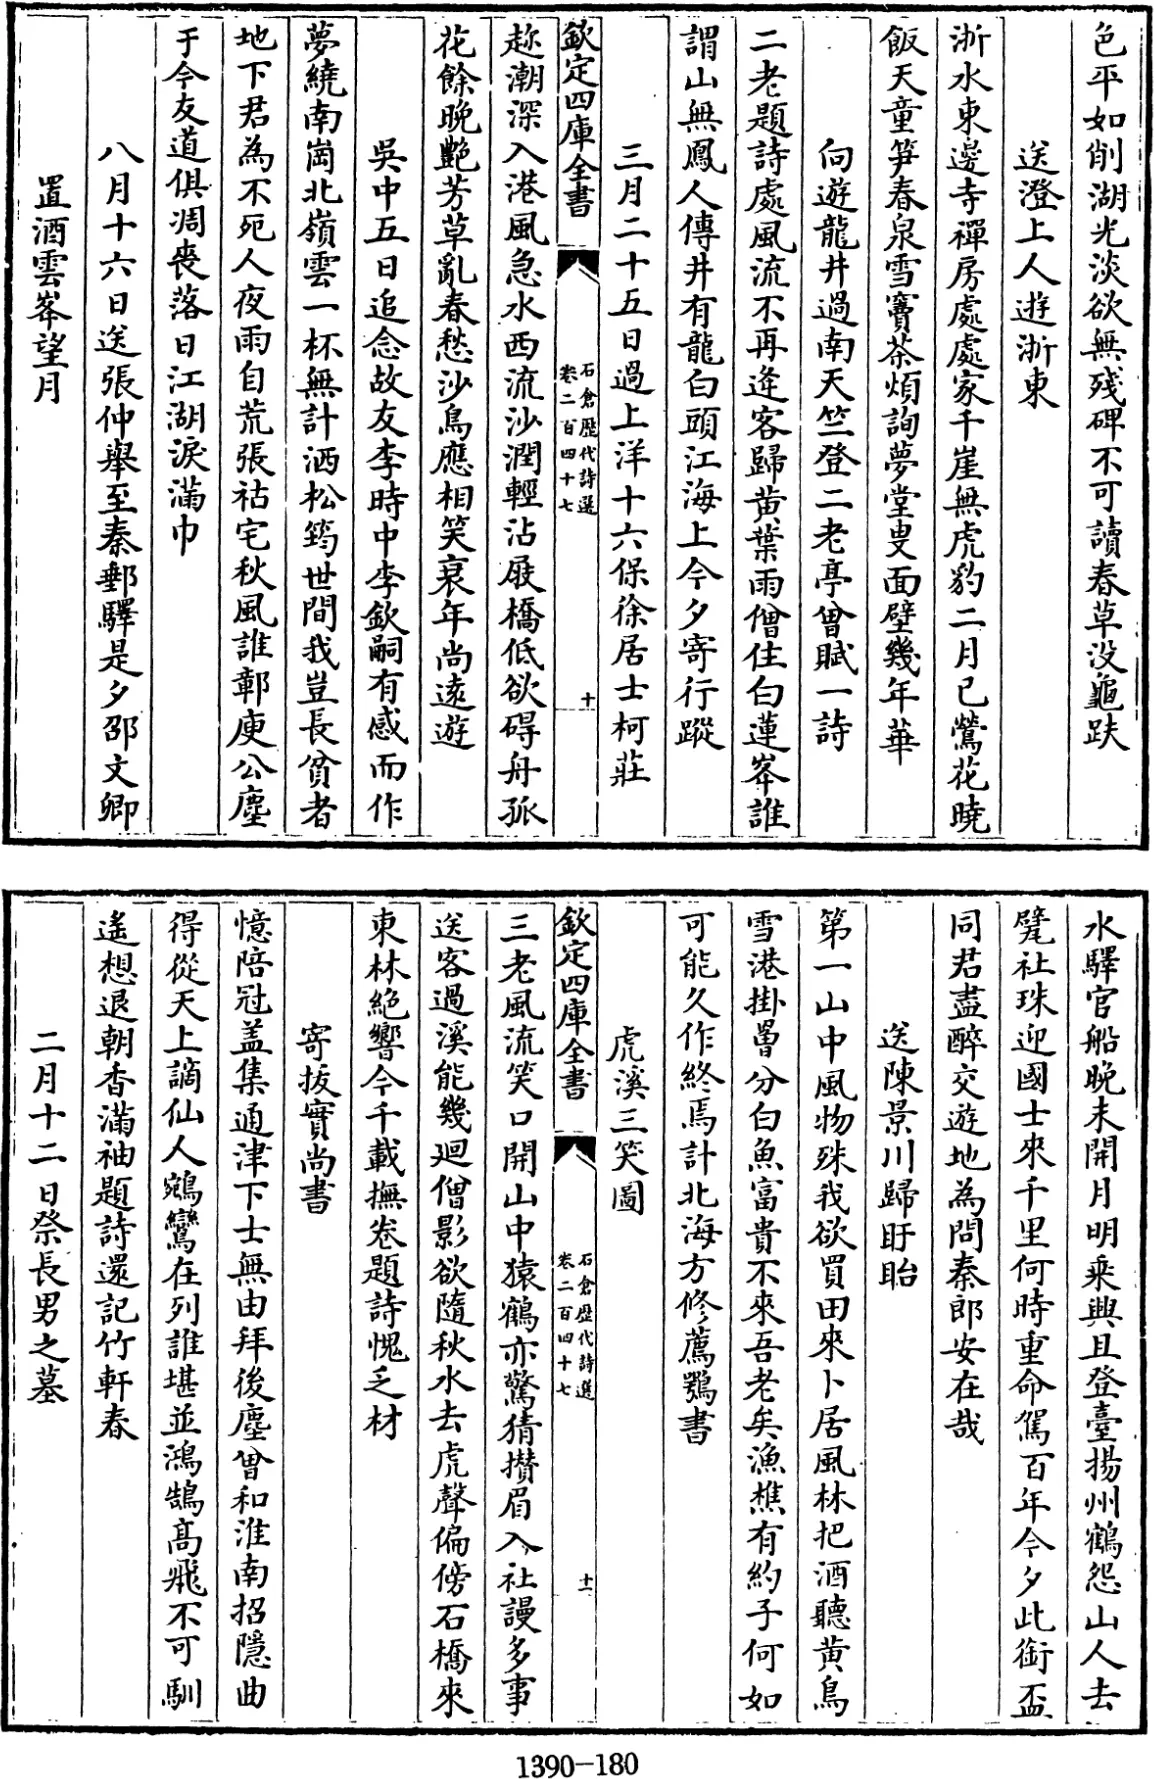 色平如削湖光淡欲無殘碑不可讀春草没龜趺
送澄上人遊浙東
浙水東邊寺禪房處處家千崖無虎豹二月已鶯花曉
飯天童笋春泉雪竇茶煩詢夢堂叟面壁幾年華
向遊龍井過南天竺登二老亭曾賦一詩
二老題詩處風流不再逢客歸黄葉雨僧住白蓮峯誰
謂山無鳳人傳井有龍白頭江海上今夕寄行蹤
三月二十五日過上洋十六保徐居士柯莊
欽定四庫全書
石倉歷代詩選
卷二百四十七
十
趂潮深入港風急水西流沙潤輕沾屐橋低欲碍舟孤
花餘晩艶芳草亂春愁沙鳥應相笑衰年尚逺遊
吳中五日追念故友李時中李欽嗣有感而作
夢繞南崗北嶺雲一杯無計洒松筠世間我豈長貧者
地下君為不死人夜雨自荒張祜宅秋風誰郭庾公塵
于今友道俱凋喪落日江湖淚滿巾
八月十六日送張仲舉至秦郵驛是夕邵文卿
置酒雲峯望月
水驛官船晩未開月明乘興且登臺揚州鶴怨山人去
甓社珠迎國士來千里何時重命駕百年今夕此銜盃
同君盡醉交遊地為問秦郎安在哉
送陳景川歸盱眙
第一山中風物殊我欲買田來卜居風林把酒聽黄鳥
雪港掛罾分白魚富貴不來吾老矣漁樵有約子何如
可能久作終焉計北海方修薦鶚書
虎溪三笑圖
欽定四庫全書
石倉歷代詩選
卷二百四十七
十一
三老風流笑口開山中猿鶴亦驚猜攢眉入社謾多事
送客過溪能幾廻僧影欲隨秋水去虎聲偏傍石橋來
東林絶響今千載撫卷題詩愧乏材
寄拔實尚書
憶陪冠盖集通津下士無由拜後塵曾和淮南招隱曲
得從天上謫仙人鵷鸞在列誰堪並鴻鵠髙飛不可馴
遙想退朝香滿袖題詩還記竹軒春
二月十二日祭長男之墓
1390-180